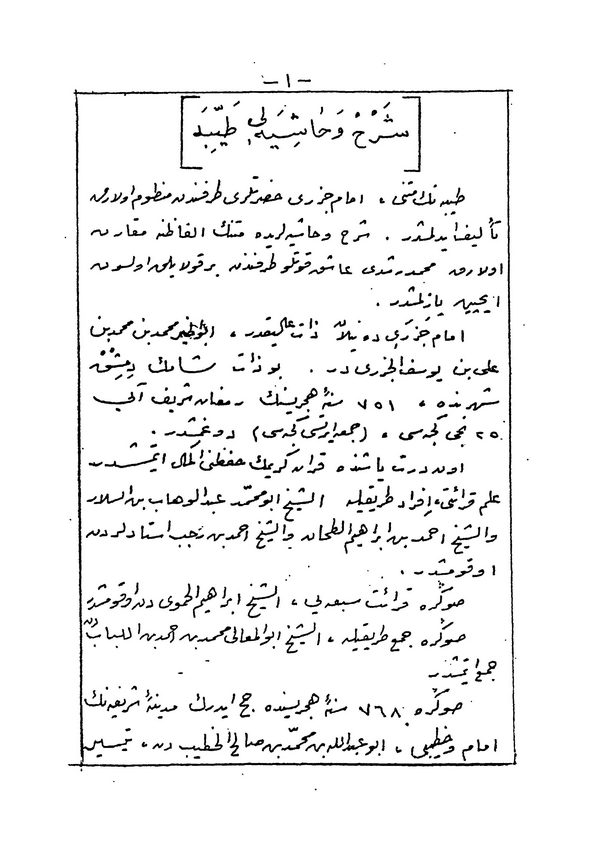 — ١ —
شَرْحْ وَحَاشِيَه لِى طَيِّبَه
طيبه نك متنى ، امام جزرى حضرتلرى طرفندن منظوم اولارق
تأليف ايدلمشدر . شرح وحاشيه لريده متنك الفاظنه مقارن
اولارق محمد رشدى عاشق قوتلو طرفندن بر قولايلق اولسون
ايچين يازلمشدر .
امام جَزَرى ده نيلان ذات عاليقدر ، ابوالخير محمد بن محمد بن
على بن يوسف الجزرى در . بو ذات شامك دِمِشْقْ
شهرنده ، ٧٥١ سنۀ هجريسنك رمضان شريف آلى
٢٥ نجى كيجه سى ، (جمعه ايرتسى كيجه سى) دوغمشدر .
اون درت ياشنده قرآن كريمك حفظنى اكمال ايتمشدر
علم قرائتى ، اِفراد طريقيله الشيخ ابو محمّد عبدالوهاب بن السلار
والشيخ احمد بن ابراهيم الطحان والشيخ احمد بن رجب استادلردن
اوقومشدر .
صوكره قرائت سبعه يى ، الشيخ ابراهيم الحموى دن اوقومشدر
صوكره جمع طريقيله ، الشيخ ابو المعالى محمد بن احمد بن اللبان دن
جمع ايتمشدر
صوكره ٧٦٨ سنۀ هجريسنده حج ايدرك مدينۀ شريفه نك
امام وخطيبى ، ابو عبدالله بن محمّد بن صالح الخطيب دن ، تيسير